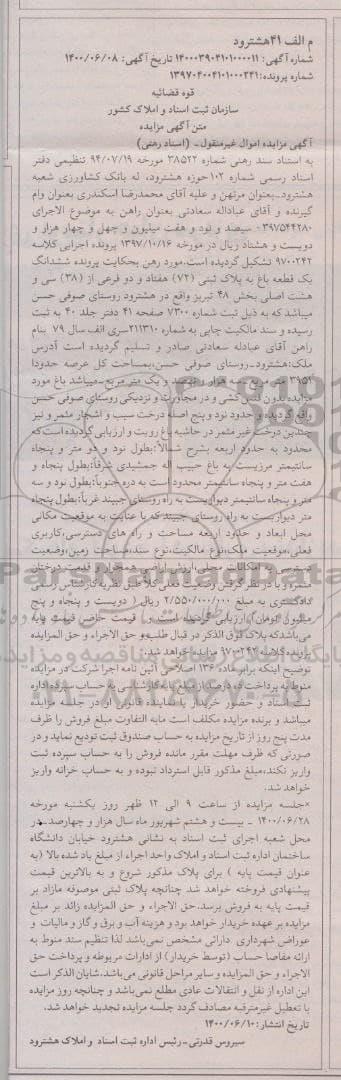 م الف ۴۱هشترود
شماره آگهی: ۱۴۰۰۰۳۹۰۴۱۰۱۰۰۰۰۱۱ تاریخ آگهی: ۱۴۰۰/۰۶/۰۸
شماره پرونده:۱۳۹۷۰۴۰۰۴۱۰۱۰۰۰۲۴۱
قوه قضائیه
سازمان ثبت اسناد و املاک کشور
متن آگهی مزایده
آگهی مزایده اموال غیرمنقول- (اسناد رهنی)
به استناد سند رهنی شماره ۳۸۵۲۲ مورخه ۹۴/۰۷/۱۹ تنظیمی دفتر
اسناد رسمی شماره ۱۰۲حوزه هشترود، له بانک کشاورزی شعبه
هشترود-بعنوان مرتهن و علیه آقای محمدرضا اسکندری بعنوان وام
گیرنده و آقای عباداله سعادتی بعنوان راهن به موضوع الاجرای
۳۹۷۵۴۴۲۸۰- سیصد و نود و هفت میلیون و چهل و چهار هزار و
دویست و هشتاد ریال در مورخه ۱۳۹۷/۱۰/۱۶ پرونده اجرایی کلاسه
۹۷۰۰۲۴۲ تشکیل گردیده است.مورد رهن بحکایت پرونده ششدانگ
یک قطعه باغ به پلاک ثبتی (۷۲) هفتاد و دو فرعی از (۳۸) سی و
هشت اصلی بخش ۴۸ تبریز واقع در هشترود روستای صوفی حسن
میباشد که به ذیل ثبت شماره ۷۳۰۰ صفحه ۴۱ دفتر جلد ۴۰ به ثبت
رسیده و سند مالکیت چاپی به شماره ۲۱۱۳۱۰سری الف سال ۷۹ بنام
راهن آقای عبادله سعادتی صادر و تسلیم گردیده است آدرس
ملک:هشترود-روستای صوفی حسن،بمساحت کل عرصه حدودا
متر مربع سه هزار و نهصد و یک متر مربع-میباشد باغ مورد
مزایده بدون فنس کشی و در مجاورت و نزدیکی روستای صوفی حسن
واقع گردیده و حدود نود و پنج اصله درخت سیب و اشجار مثمر و نیز
چندین درخت غیر مثمر در حاشیه باغ رویت و ارزیابی گردیده است که
محدود به حدود اربعه بشرح شمالاً:بطول نود و دو متر و پنجاه
سانتیمتر مرزیست به باغ حبیب اله جمشیدی شرقاً:بطول پنجاه و
هفت متر و پنجاه سانتیمتر محدود است به دره جنوباً:بطول نود و سه
متر و پنجاه سانتیمتر دیواریست به راه روستای جبیند غرباً:بطول پنجاه
متر دیواریست به راه روستای جبیند که با عنایت به موقعیت مکانی
محل ابعاد و حدود اربعه مساحت و راه های دسترسی،کاربری
فعلی،موقعیت ملک،نوع مالکیت،نوع سند،مساحت زمین،وضعیت
دسترسی و امکانات محلی،ارزش اراضی همجوار و قدمت درختان
مثمر و با در نظر گرفتن وضعیت فعلی کلا حق نظریه کارشناس رسمی
دادگستری به مبلغ ۲/۵۵۰/۰۰۰/۰۰۰ ریال ( دویست و پنجاه و پنج
میلیون تومان)ارزیابی گردیده است و قیمت حاضر قیمت پایه
می‌باشدکه پلاک فوق الذکر در قبال طلب و حق الاجراء و حق المزایده
پرونده کلاسه ۹۷۰۰۲۴۲ مزایده خواهد شد.
توضیح اینکه برابر ماده ۱۳۶ اصلاحی آئین نامه اجرا شرکت در مزایده
منوط به پرداخت ده درصد از مبلغ پایه کارشناسی به حساب سپرده اداره
ثبت اسناد و حضور خریدار یا نماینده قانونی او در جلسه مزایده
میباشد و برنده مزایده مکلف است مابه التفاوت مبلغ فروش را ظرف
مدت پنج روز از تاریخ مزایده به حساب صندوق ثبت تودیع نماید و در
صورتی که ظرف مهلت مقرر مانده فروش را به حساب سپرده ثبت
واریز نکند،مبلغ مذکور قابل استرداد نبوده و به حساب خزانه واریز
خواهد شد.
×جلسه مزایده از ساعت ۹ الی ۱۲ ظهر روز یکشنبه مورخه
۱۴۰۰/۰۶/۲۸ - بیست و هشتم شهریور ماه سال هزار و چهارصد-در
محل شعبه اجرای ثبت اسناد به نشانی هشترود خیابان دانشگاه
ساختمان اداره ثبت اسناد و املاک واحد اجراء از مبلغ یاد شده بالا (به
عنوان قیمت پایه ) برای پلاک مذکور شروع و به بالاترین قیمت
پیشنهادی فروخته خواهد شد چنانچه پلاک ثبتی موصوفه مازاد بر
قیمت پایه به فروش برسد.حق الاجراء و حق المزایده زائد بر مبلغ
مزایده بر عهده خریدار خواهد بود و هزینه آب و برق و گاز و مالیات و
عوراض شهرداری دارائی مشخص نمی‌باشد لذا تنظیم سند منوط به
ارائه مفاصا حساب (توسط خریدار) از ادارات مربوطه و پرداخت حق
الاجراء و حق المزایده و سایر مراحل قانونی می‌باشد.شایان الذکر است
این اداره از نقل و انتقالات عادی مطلع نمی‌باشد و چنانچه روز مزایده
با تعطیل غیرمترقبه مصادف گردد جلسه مزایده تجدید خواهد شد.
تاریخ انتشار: ۱۴۰۰/۰۶/۱۰
سیروس قدرتی-رئیس اداره ثبت اسناد و املاک هشترود